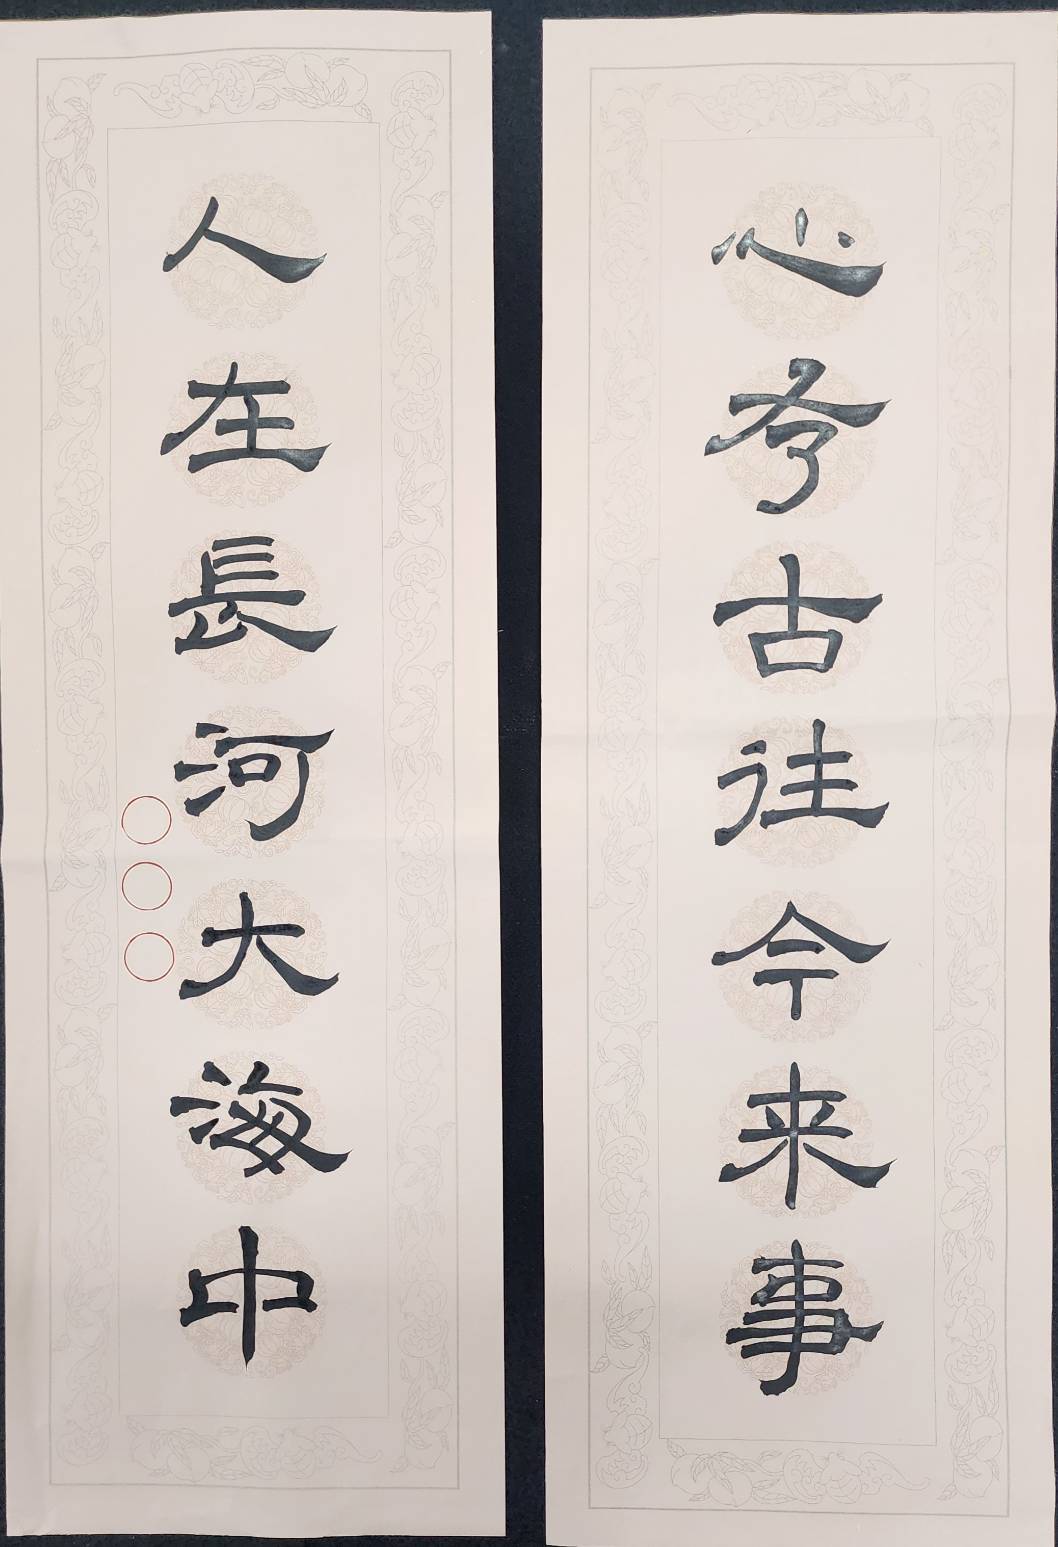 心古往今来事
人在長河大海中